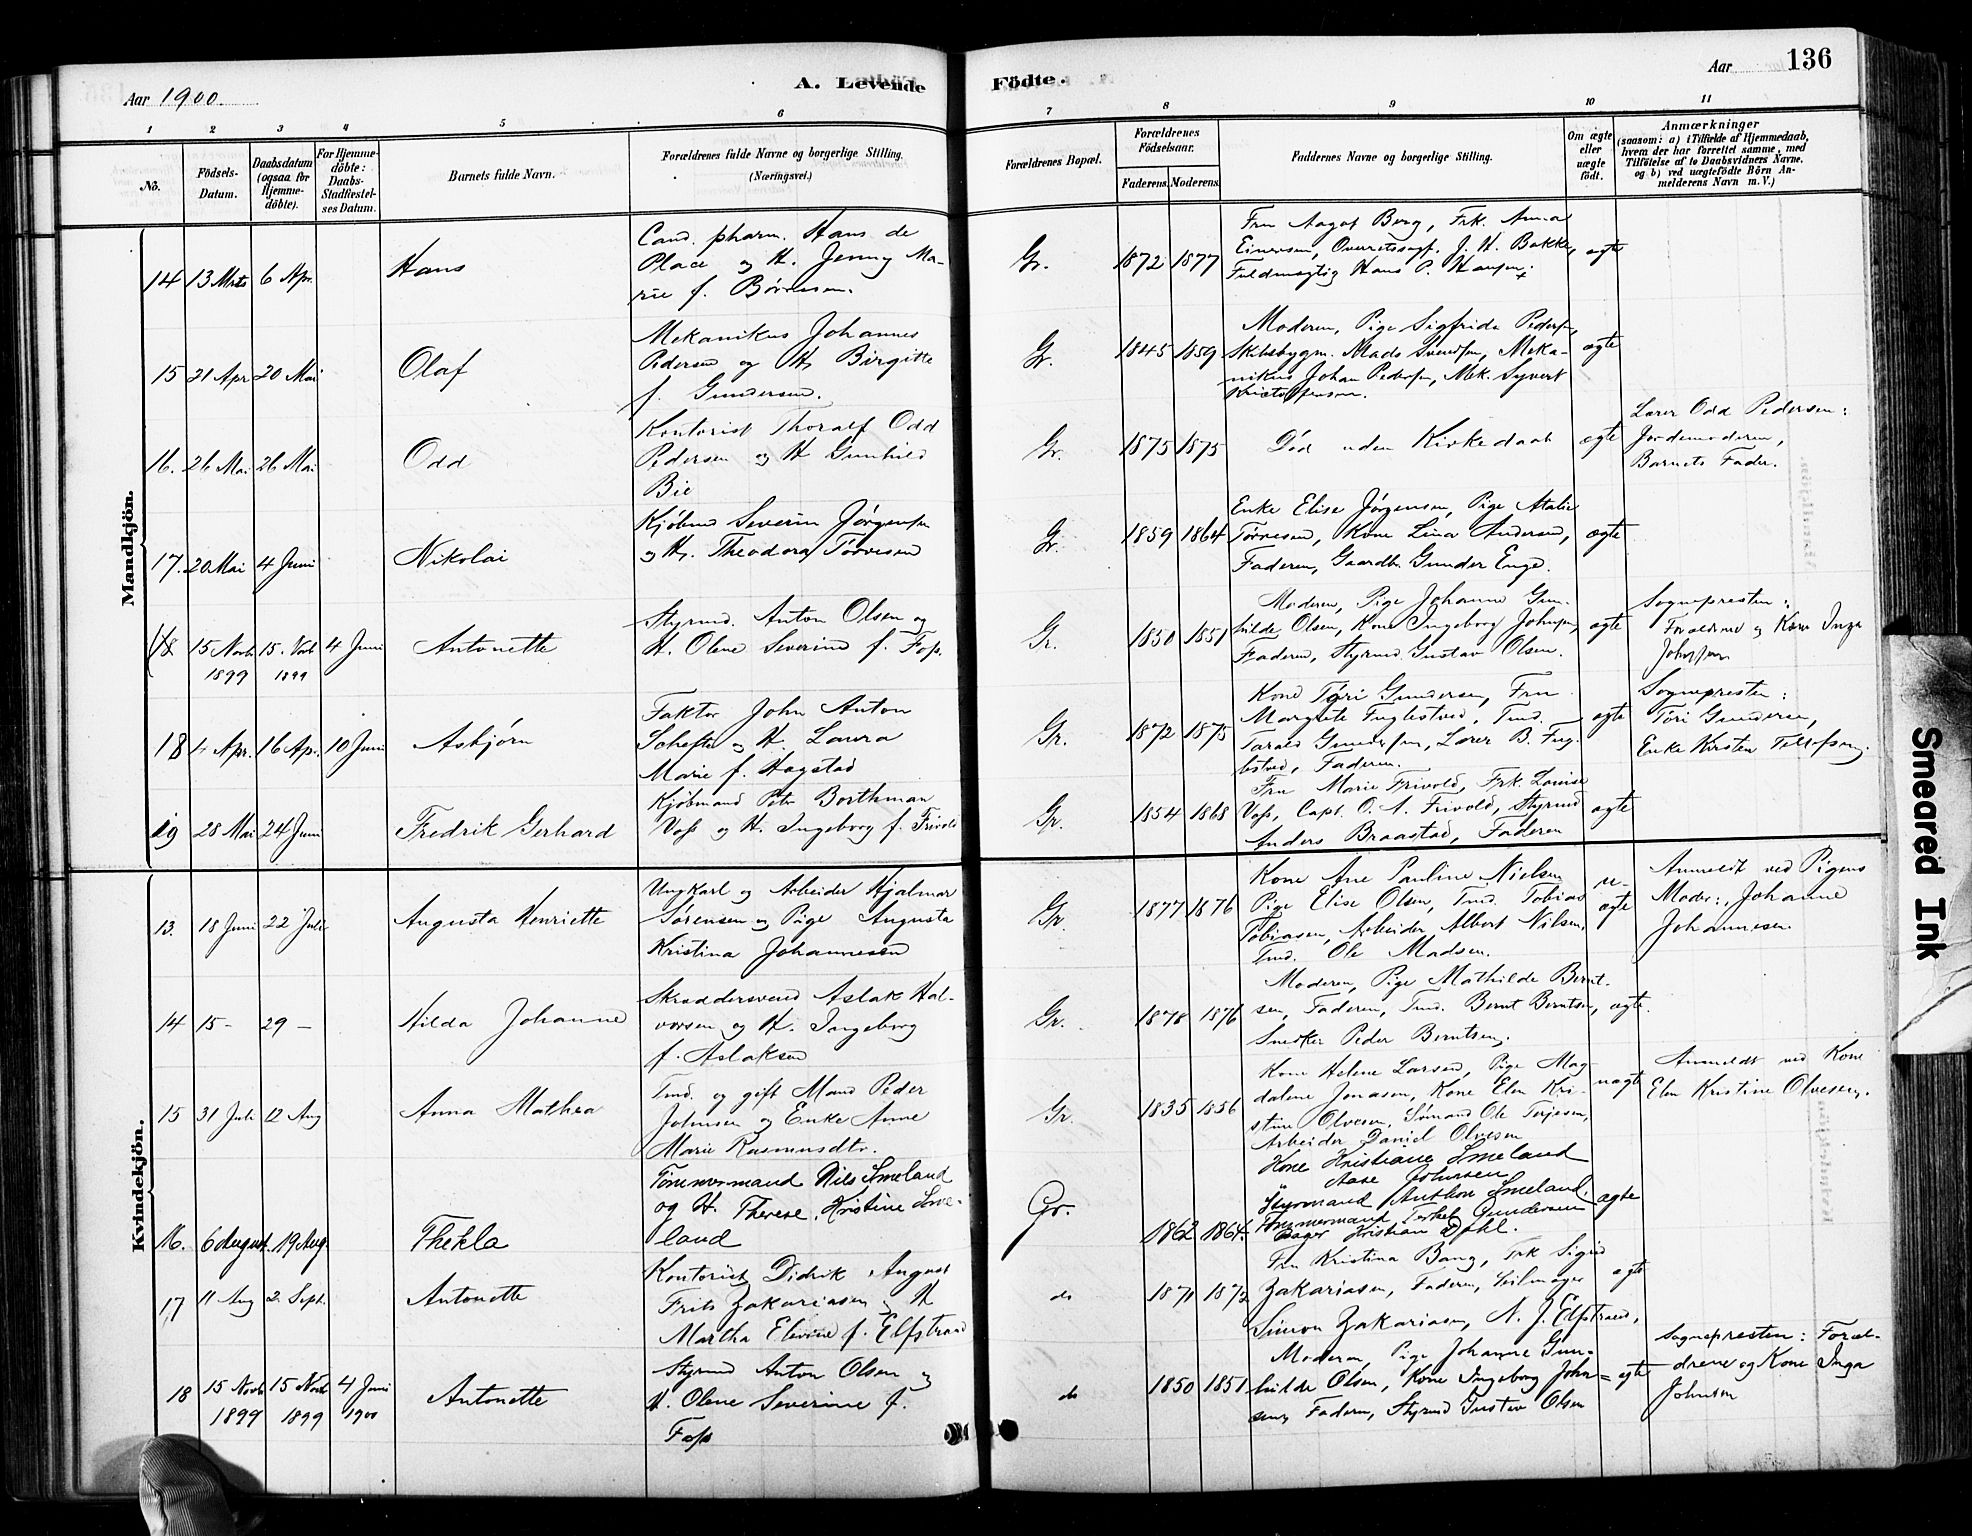 Aar 1900.
A. Levende
Födte.
Aar
136
1 2 3 4 5 6 7 8 9 10 11
No.
Födsels-Datum.
Daabsdatum (ogsaa for Hjemme-döbte).
For Hjemme-döbte: Daabs-Stadfæstel-ses Datum.
Barnets fulde Navn.
Forældrenes fulde Navne og borgerlige Stilling. (Næringsvei.)
Forældrenes Bopæl.
Forældrenes Födselsaar.
Faderens. Moderens.
Faddernes Navne og borgerlige Stilling.
Om ægte eller uægte født.
Anmærkninger
(saasom: a) i Tilfælde af Hjemmedaab, hvem der har forrettet samme, med Tilföielse af to Daabsvidners Navne, og b) ved uægtefödte Börn An-melderens Navn m. V.)
Mandkjön.
14 13 Mrts 6 Apr. Hans
Cand. pharm. Hans de
Place og H. Jenny Ma-
rie f. Börresen.
Gr. 1872 1877
Fru Aagot Berg, Frk. Anna
Einersen, Overretssagf. J. H. Bakke,
Fuldmægtig Hans P. Hansen.
ægte
15 21 Apr 20 Mai Olaf
Mekanikus Johannes
Pedersen og H. Birgitte
f. Gundersen.
Gr. 1845 1859
Moderen, Pige Sigfride Pedersen,
Skibsbygm. Mads Svendsen, Meka-
nikus Johan Pedersen, Mek. Syvert
Kristoffersen.
ægte
16. 26 Mai 26 Mai Odd
Kontorist Thoralf Odd
Pedersen og H. Gunhild
Bie
Gr. 1875 1875
Död uden Kirkedaab
ægte
Lærer Odd Pedersen:
Jordemoderen,
Barnets Fader.
17. 20 Mai 4 Juni Nikolai
Kjøbmd Severin Jörgensen
og H. Theodora Torvesen
Gr. 1859 1864
Enke Elise Jörgensen, Pige Atalie
Torvesen, Kone Lina Andersen,
Faderen, Gaardbr. Gunder Enge.
ægte
18 15 Novb. 1899 15. Novb 1899 4 Juni Antonette
Styrmd. Anton Olsen og
H. Olene Severine f. Foss.
Gr. 1850 1851
Moderen, Pige Johanne Gun-
hilde Olsen, Kone Ingeborg Johnsen,
Faderen, Styrmd. Gustav Olsen.
ægte
Sognepresten:
Forældrene og Kone Inga
Johnsen
18 4 Apr. 16 Apr. 10 Juni Asbjörn
Faktor John Anton
Schefte og H. Laura
Marie f. Hagstad
Gr. 1872 1875
Kone Töri Gundersen, Fru
Margrete Fuglestved, Tmd.
Tarald Gundersen, Lærer B. Fug-
lestved, Faderen.
ægte
Sognepresten:
Töri Gundersen,
Enke Kirsten Tellefsen.
19 28 Mai 24 Juni Fredrik Gerhard
Kjöbmand Peter Borthman
Voss og H. Ingeborg f. Frivold
Gr. 1854 1868
Fru Marie Frivold, Frk. Louise
Voss, Capt. O. A. Frivold, Styrmd
Anders Braastad, Faderen
ægte
Kvindekjön.
13. 18 Juni 22 Juli Augusta Henriette
Ungkarl og Arbeider Hjalmar
Sörensen og Pige Augusta
Kristina Johannesen
Gr. 1877 1876
Kone Ane Pauline Nielsen
Pige Elise Olsen, Tmd. Tobias
Tobiasen, Arbeider Albert Nilsen,
Tmd. Ole Madsen.
u-ægte
Anmeldt ved Pigens
Moder:, Johanne
Johannesen
14 15 - 29 - Hilda Johanne
Skræddersvend Aslak Hal-
vorsen og H. Ingeborg
f. Aslaksen
Gr. 1878 1876
Moderen, Pige Mathilde Bernt-
sen, Faderen, Tmd. Bernt Berntsen,
Snedker Peder Berntsen.
ægte.
15 31 Juli 12 Aug Anna Mathea
Tmd. og gift Mand Peder
Johnsen og Enke Anne
Marie Rasmusdtr.
Gr. 1835 1856
Kone Helene Larsen, Pige Mag-
dalene Jonasen, Kone Elen Kri-
stine Olvesen, Sömand Ole Terjesen,
Arbeider Daniel Olvesen
uægte
Anmeldt ved Kone
Elen Kristine Olvesen.
16. 6 August. 19 Aug. Thekla
Tömmermand Nils Smeland
og H. Therese, Kristine Sme-
land
Gr. 1862 1864
Kone Kristiane Smeland
Aase Johnsen
Styrmand Anthon Smeland,
Tömmermand Terkel Gundersen
Bager Kristian Dahl.
ægte
17 11 Aug 2. Sept. Antonette
Kontorist Didrik August
Frits Zakariasen og H
Martha Elevine f. Elfstrand
do 1871 1872
Fru Kristina Bang, Frk Sigrid
Zakariasen, Faderen, Seilmager
Simon Zakariasen, N. J. Elfstrand.
ægte
18 15 Novb 1899 15 Novb 1899 4 Juni 1900 Antonette
Styrmd Anton Olsen og
H. Olene Severine f.
Foss
do 1850 1851
Moderen, Pige Johanne Gun-
hilde Olsen, Kone Ingeborg John=
sen, Faderen, Styrmd Gustav Olsen
ægte
Sognepresten: Foræl-
drene og Kone Inga
Johnsen
Smeared Ink